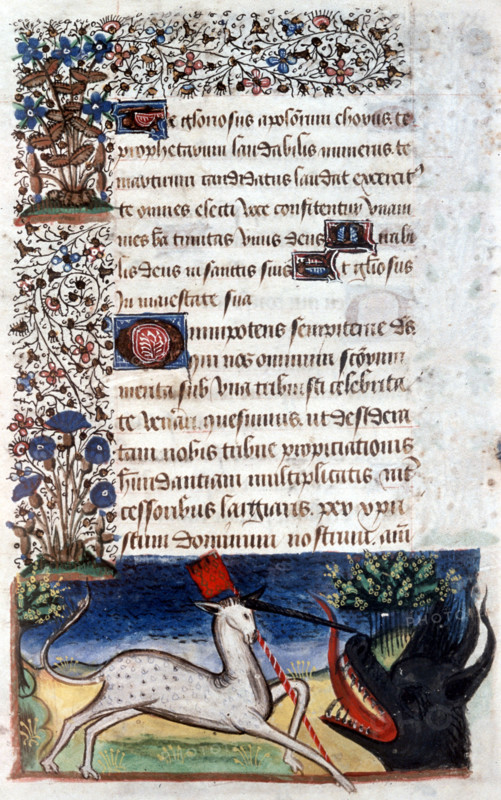 Te gloriosus apostolorum chorus te
prophetarum laudabilis numerus te
martirum candidatus laudat exercit'
te omnes electi voce confitentur vnani
mes bta trinitas vnus deus Mirabi
lis deus in sanctis suis Et gliosus
In maiestate sua
Omnipotens sempiterne ds
qui nos omnium sctorum
merita sub vna tribuisti celebrita
te venari quesumus ut desidera
tam nobis tribue propiciationis
habundantiam multiplicatis int
cessoribus largiaris. per xpm
stum dominum nostrum. am